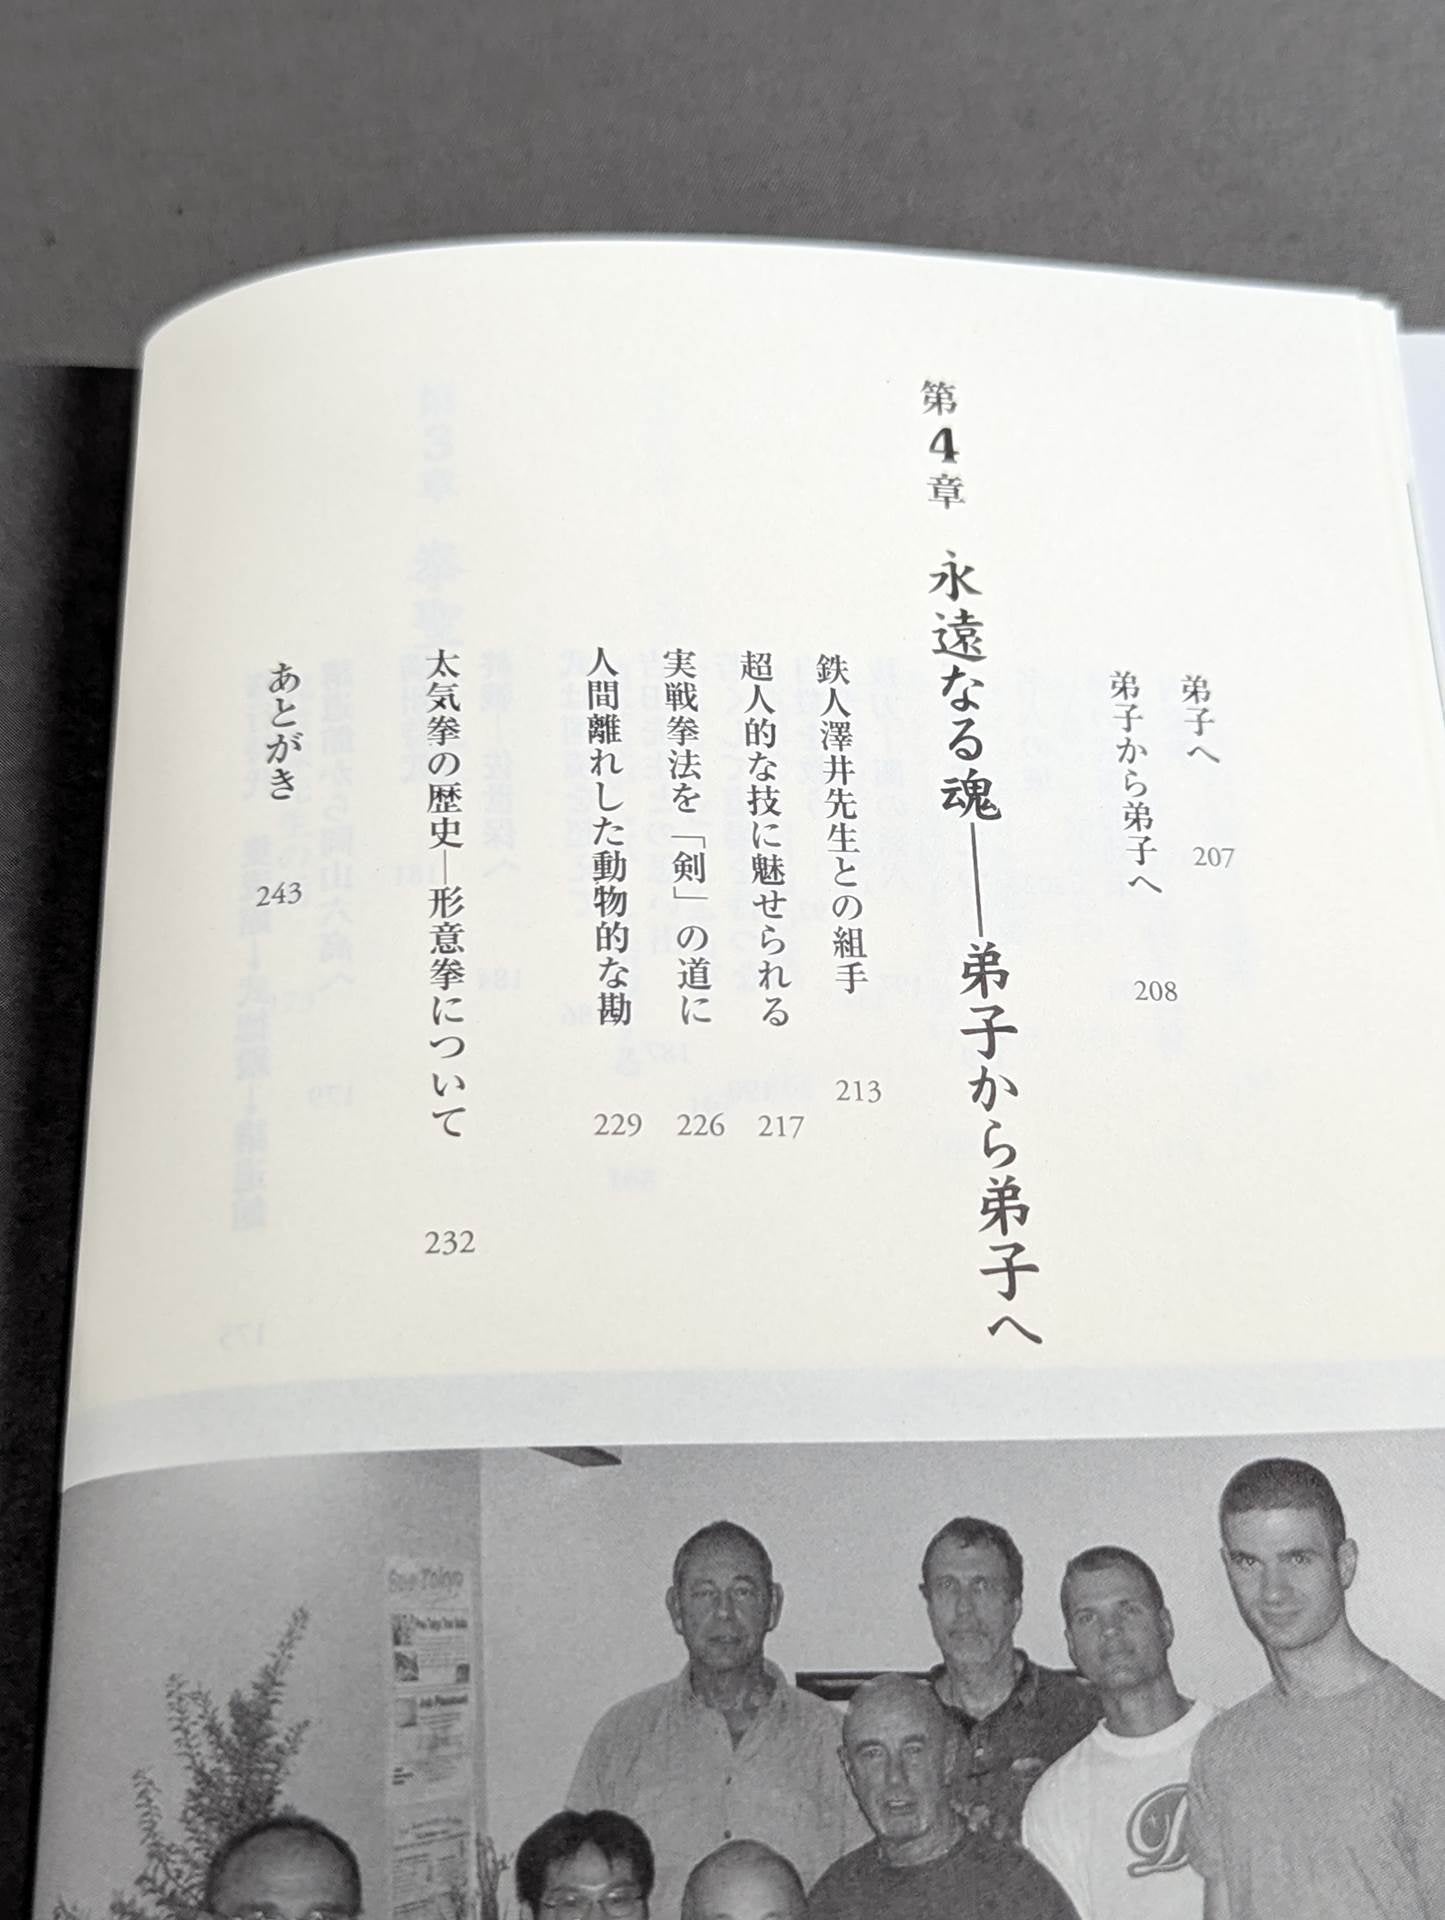 弟子へ 207
弟子から弟子へ 208
第4章 永遠なる魂――弟子から弟子へ
鉄人澤井先生との組手 213
超人的な技に魅せられる 217
実戦拳法を「剣」の道に 226
人間離れした動物的な勘 229
太気拳の歴史―形意拳について 232
あとがき 243
See Tokyo